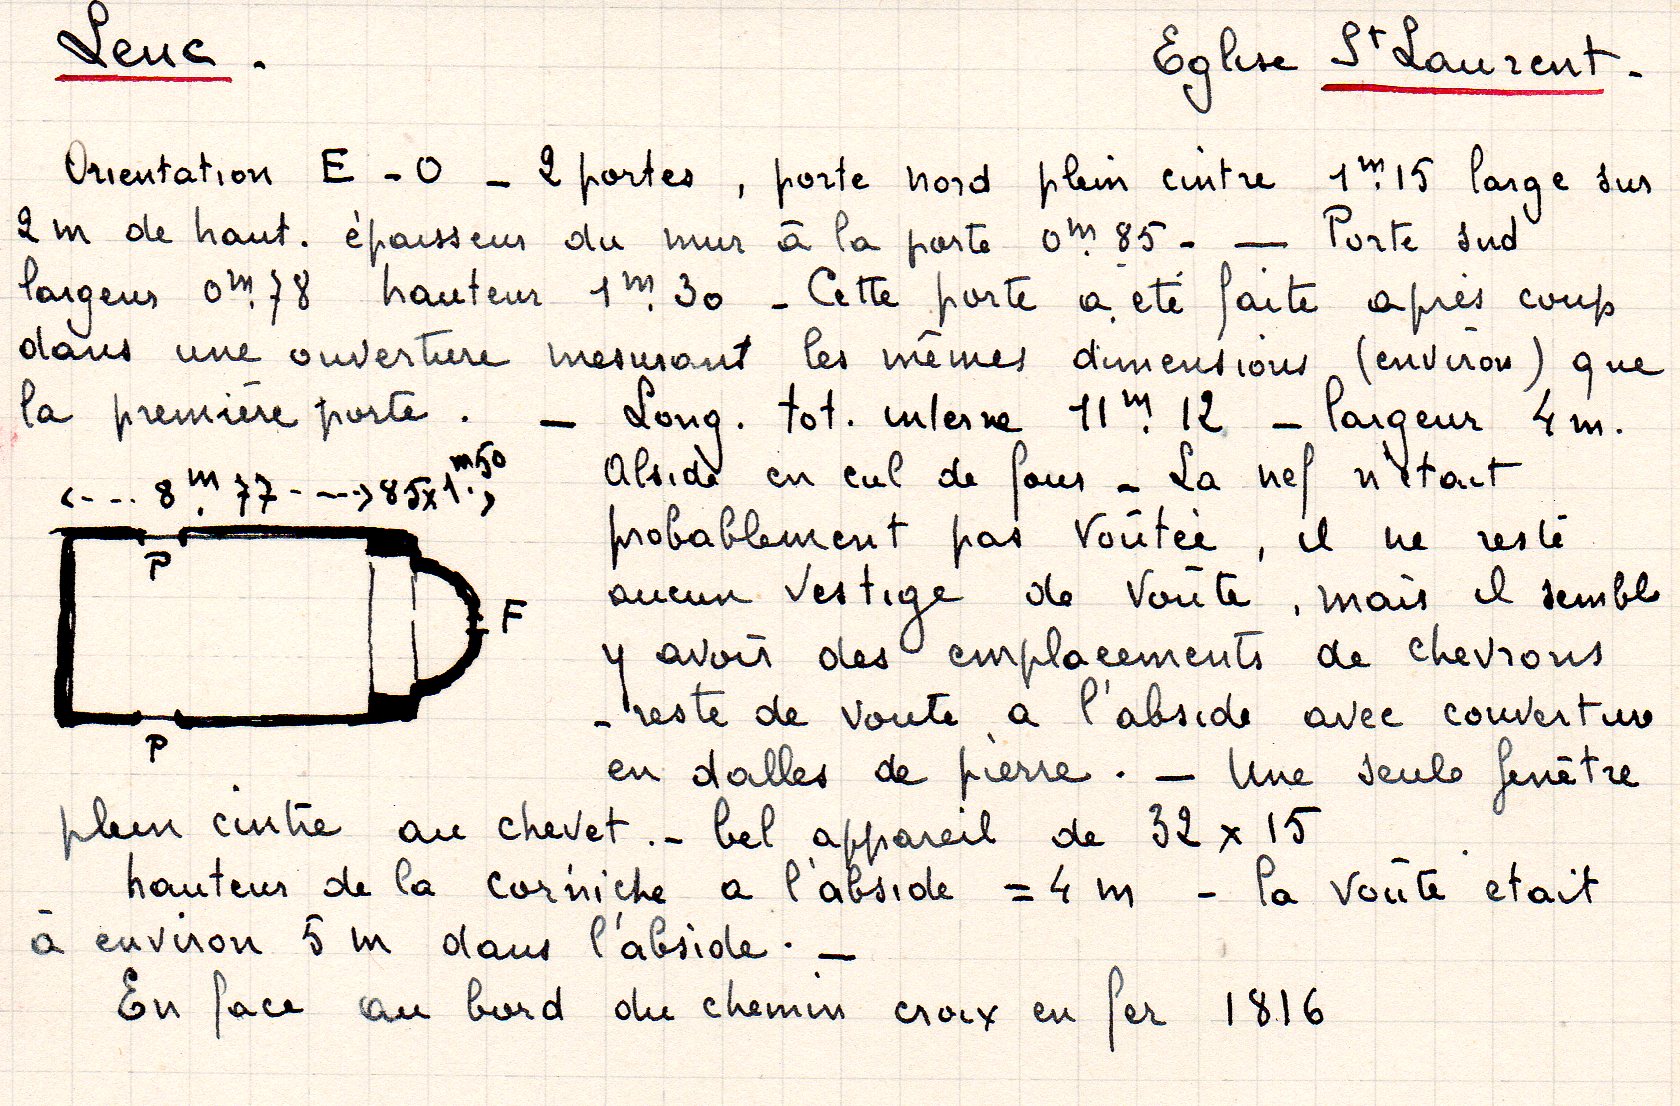 Leuc.
Eglise St Laurent.
Orientation E - O - 2 portes, porte nord plein cintre 1m.15 large sur
2 m de haut. épaisseur du mur à la porte 0m.85 - — Porte sud
largeur 0m.78 hauteur 1m.30 - Cette porte a été faite après coup
dans une ouverture mesurant les mêmes dimensions (environ) que
la première porte. - Long. tot. interne 11m.12 - largeur 4 m.
Abside en cul de four - La nef n'était
<---- 8m.77 ----> 85x1.m50>
probablement pas voûtée, il ne reste
aucun vestige de voûte, mais il semble
y avoir des emplacements de chevrons
- reste de voute a l'abside avec couverture
en dalles de pierre. - Une seule fenêtre
P
F
P
plein cintre au chevet. - bel appareil de 32 x 15
hauteur de la corniche a l'abside = 4 m - la voûte etait
à environ 5 m dans l'abside. -
En face au bord du chemin croix en fer 1816